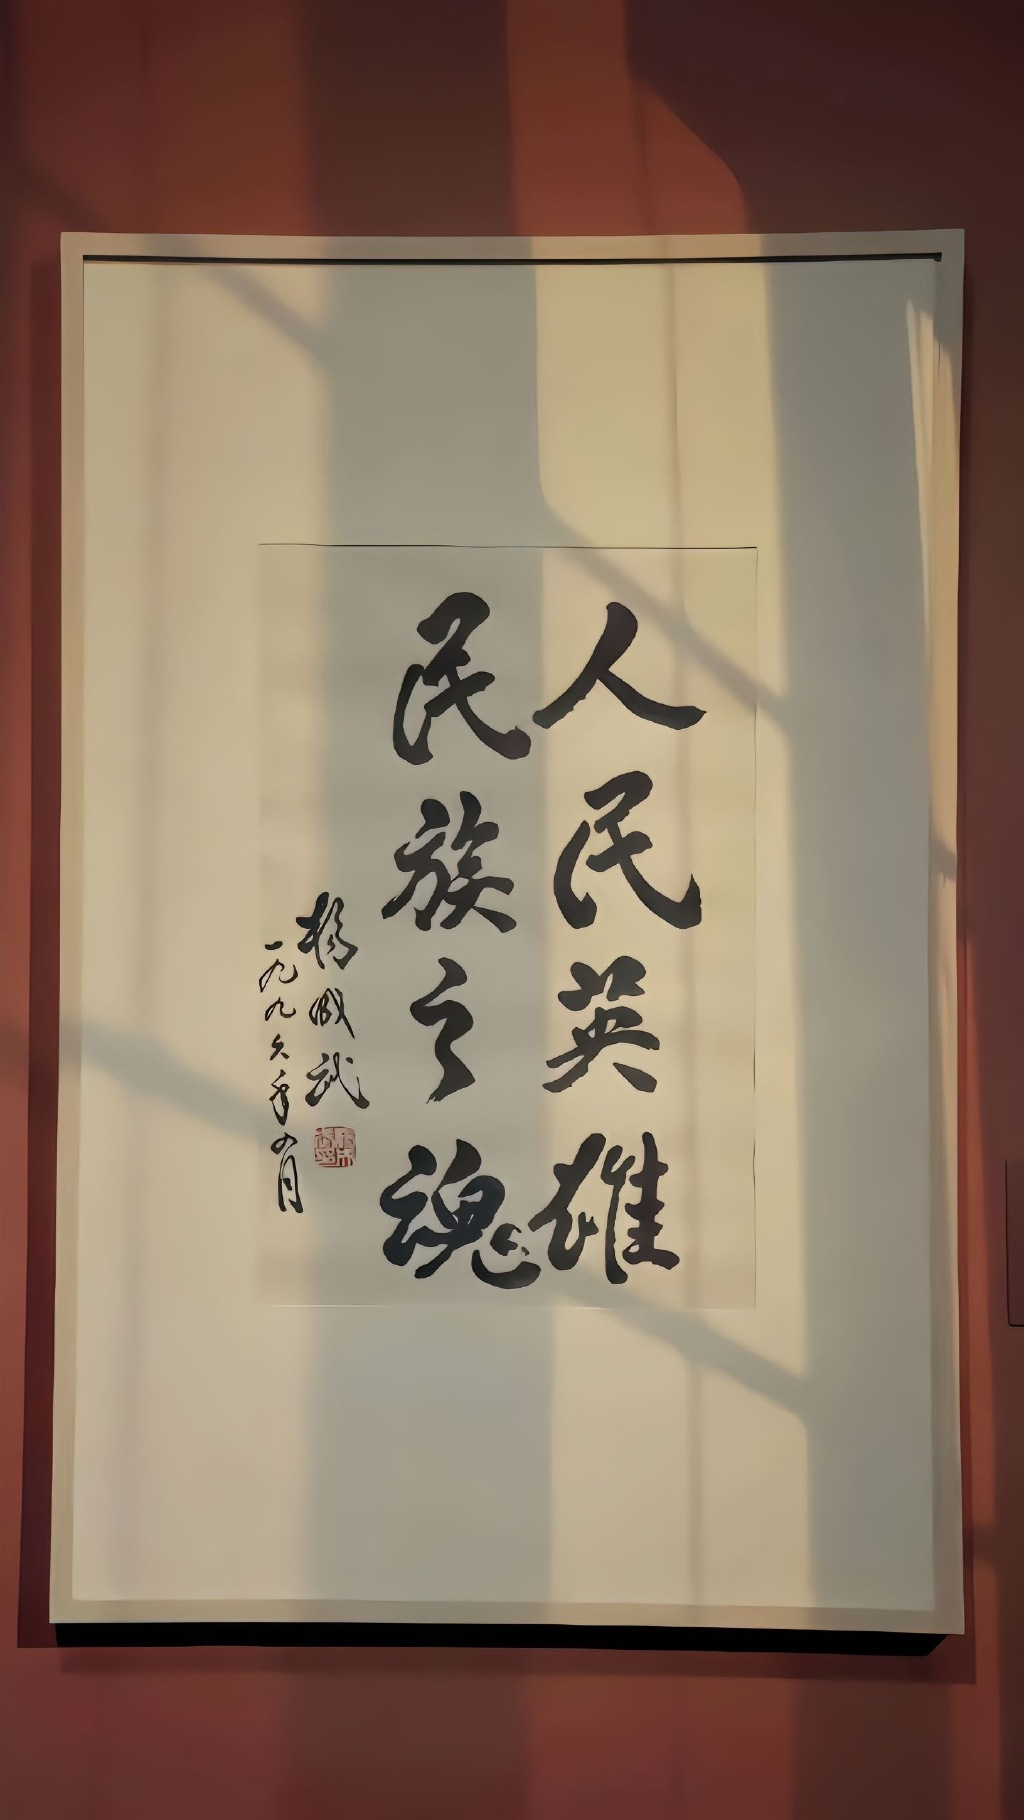 人民英雄
民族之魂
杨成武
一九九六年八月